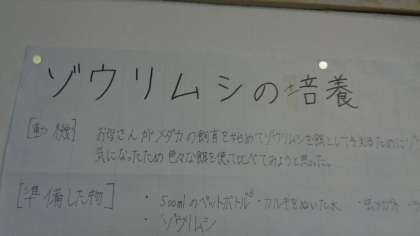 ゾウリムシの培養
[動機] お母さんがメダカの飼育をやめてゾウリムシを餌として与えるためにゾ
気になったため 色々な餌を使て比べてみようと思った。
[準備した物] ・500mlのペットボトル ・カルキをぬいた水
・ゾウリムシ